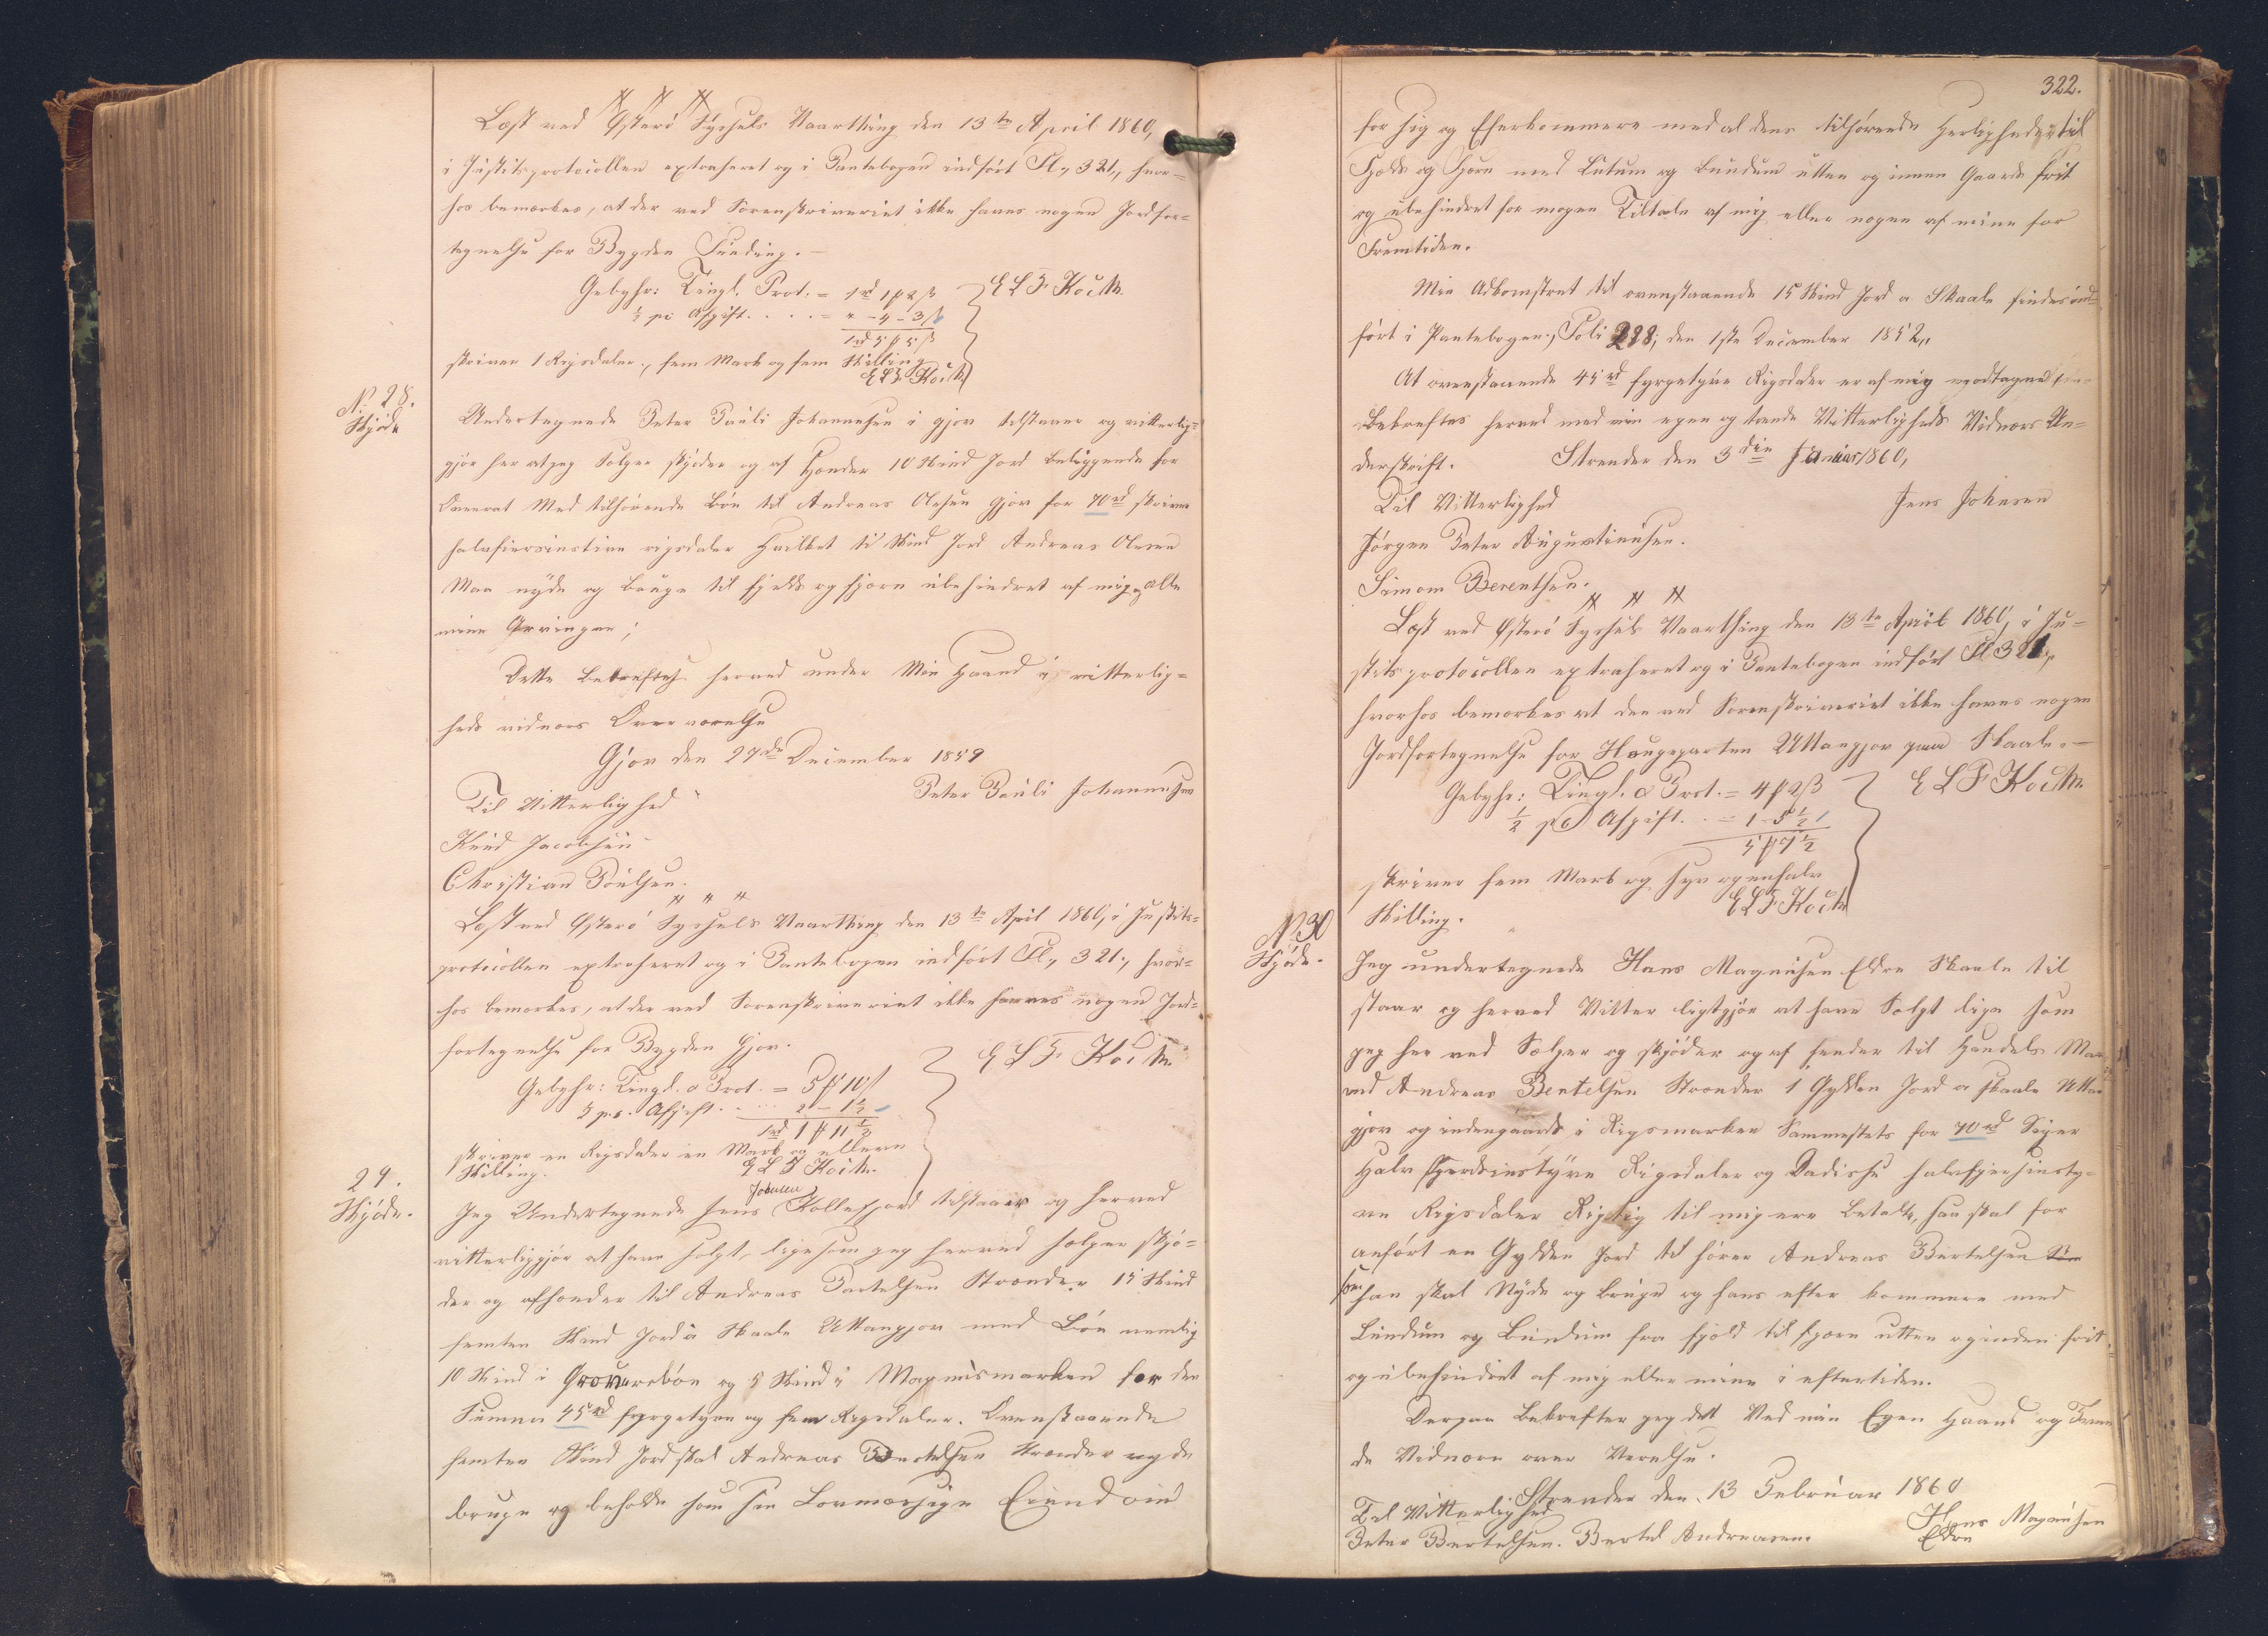 Læst ved Österö Sysels Vaarthing den 13te April 1860,
i Justitsprotocollen extraheret og i Pantebogen indfört Fl, 321, hvor=
hos bemærkes, at der ved Sorenskriveriet ikke haves nogen Jordfor=
tegnelse for Bygden Funding.-
Gebyhr: Tingl. Prot. = 1rd 1 ß 2 ß
½ pC Afgift. . . . = " - 4 - 3 ß
1rd 5 ß 5 ß
E L F Koch.
skriver 1 Rigsdaler, fem Mark og fem Skilling
E L F Koch
No 28.
Skjöde
Undertegnede Peter Pauli Johannesen i gjov tilstaaer og vitterlig=
gjör her at jeg Sælger skjöder og af Hænder 10 Skind Jord beliggende for
Med tilhörende Böe til Andreas Olesen Gjov for 70rd skriver
halvfiersinstive rigsdaler Hvilket ti Skind Jord Andreas Olesen
Maa nyde og bruge til fjelds og fjære ubehindret af mig og alle
mine Arvinger;
Dette Bekreftes herved under Min Haand i vitterlig=
heds vidners Overværelse
Gjov den 27de December 1859
Til Vitterlighed
Peter Pauli Johannesen
Knud Jacobsen
Christian Poulsen.
Læst ved Österö Sysels Vaarthing den 13te April 1860, i Justits=
protocollen extraheret og i Pantebogen indfört Fl, 321, hvor=
hos bemærkes, at der ved Sorenskriveriet ikke haves nogen Jord=
fortegnelse for Bygden Gjov.
Gebyhr: Tingl. & Prot. = 5 ß 10 ß
½ p.C. Afgift. . . . 2 - 1½
1rd 1 ß 11½
E L F Koch
skriver en Rigsdaler en Mark og elleve
Skilling.
E L F Koch.
29.
Skjöde.
Jeg Undertegnede Jens Johnsen Kollefjord tilstaaer og herved
vitterliggjör at have solgt, ligesom jeg herved sælger skjö=
der og afhænder til Andreas Bertelsen Strænder 15 Skind
femten Skind Jord a Skaale Uttangjov med Böe nemlig
10 Skind i böe og 5 Skind i Magnusmarken for den
Summa 45rd fyrgetyve og fem Rigsdaler. Ovenstaaende
femten Skind Jord skal Andreas Bertelsen Strænder nyde
bruge og beholde som sin Lovmæssige Eiendom
322.
for sig og Efterkommere med al dens tilhörende Herligheder til
Fjelds og Fjære med Lutum og Lundum utten og innen Gaards frit
og ubehindret for nogen Tiltale af mig eller nogen af mine for
Fremtiden.
Min Adkomstret til ovenstaaende 15 Skind Jord a Skaale findes ind=
fört i Pantebogen, Foli 288; den 1ste December 1852,,
At ovenstaaende 45rd fyrgetyve Rigsdaler er af mig modtagne
Bekreftes herved med min egen og tvende Vitterligheds Vidners Un=
derskrift.
Strender den 3die Januar 1860,
Til Vitterlighed
Jens Johnsen
Jörgen Peter Augustinusen.
Simon Berenthsen.
Læst ved Österö Sysels Vaarthing den 13te April 1860, i Ju=
stitsprotocollen extraheret og i Pantebogen indfört Fl 321,,
hvorhos bemærkes at der ved Sorenskriveriet ikke haves nogen
Jordfortegnelse for Haugeparten Uttangjov paa Skaale.-
Gebyhr: Tingl. & Prot. = 4 ß 2 ß
½ pC Afgift. . = 1 - 5½
5 ß 7½
E L F Koch.
skriver fem Mark og syv og en halv
Skilling.
E L F Koch
No 30
Skjöde.
Jeg undertegnede Hans Magnusen Eldre Skaale til
staar og herved Vitter ligtgjör at have Solgt lige som
jeg her ved Sælger og skjöder og af hender til Handels Ma
nd Andreas Bertelsen Strænder 1 Gylden Jord a skaale Uttan
gjov og indengaards i Rigsmarken Sammestets for 70rd Siger
halv fjerdsinstyve Rigsdaler og Dadisse halvfjersinsty=
ve Rigsdaler Rigtig til mig ere Betalt, saa skal for
anfört en Gylden Jord til hörer Andreas Bertelsen
som han skal Nyde og bruge og hans efter kommere med
Lundum og Lundum fra fjeld til fjære utten og inden frit
og ubehindret af mig eller mine i eftertiden.
Derpaa Bekrefter jeg dett Ved min Egen Haand og Tven
de Vidnere over Verelse.
Strender den 13 Februar 1860
Til Vitterlighed
Hans Magnusen
Eldre
Peter Bertelsen. Bertel Andreasen.